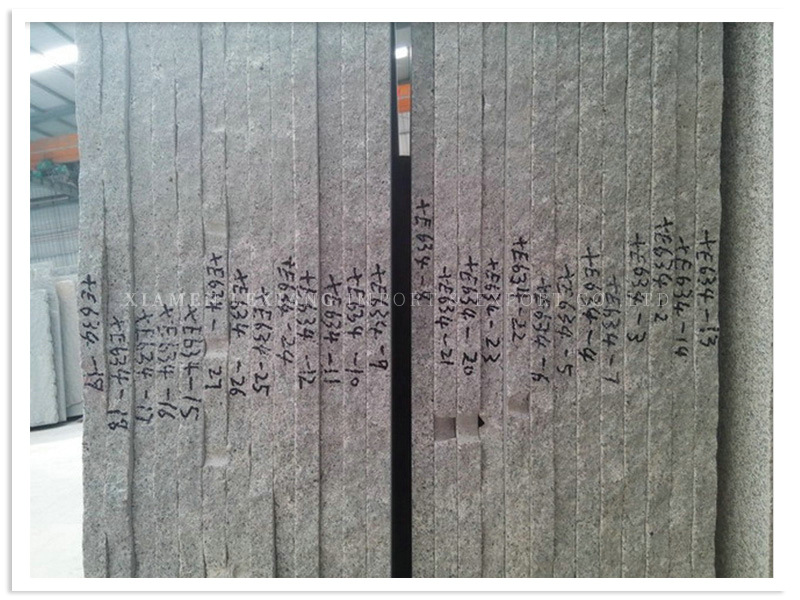 +E634-19
+E634-18
+E634-17
+E634-16
+E634-15
+E634-27
+E634-26
+E634-25
+E634-24
+E634-12
+E634-11
+E634-10
+E634-9
+E634-
+E634-21
+E634-20
+E634-23
+E634-22
+E634-6
+E634-5
+E634-4
+E634-7
+E634-3
+E634-2
+E634-14
+E634-13
XIAMEN
IMPORT & EXPORT CO., LTD